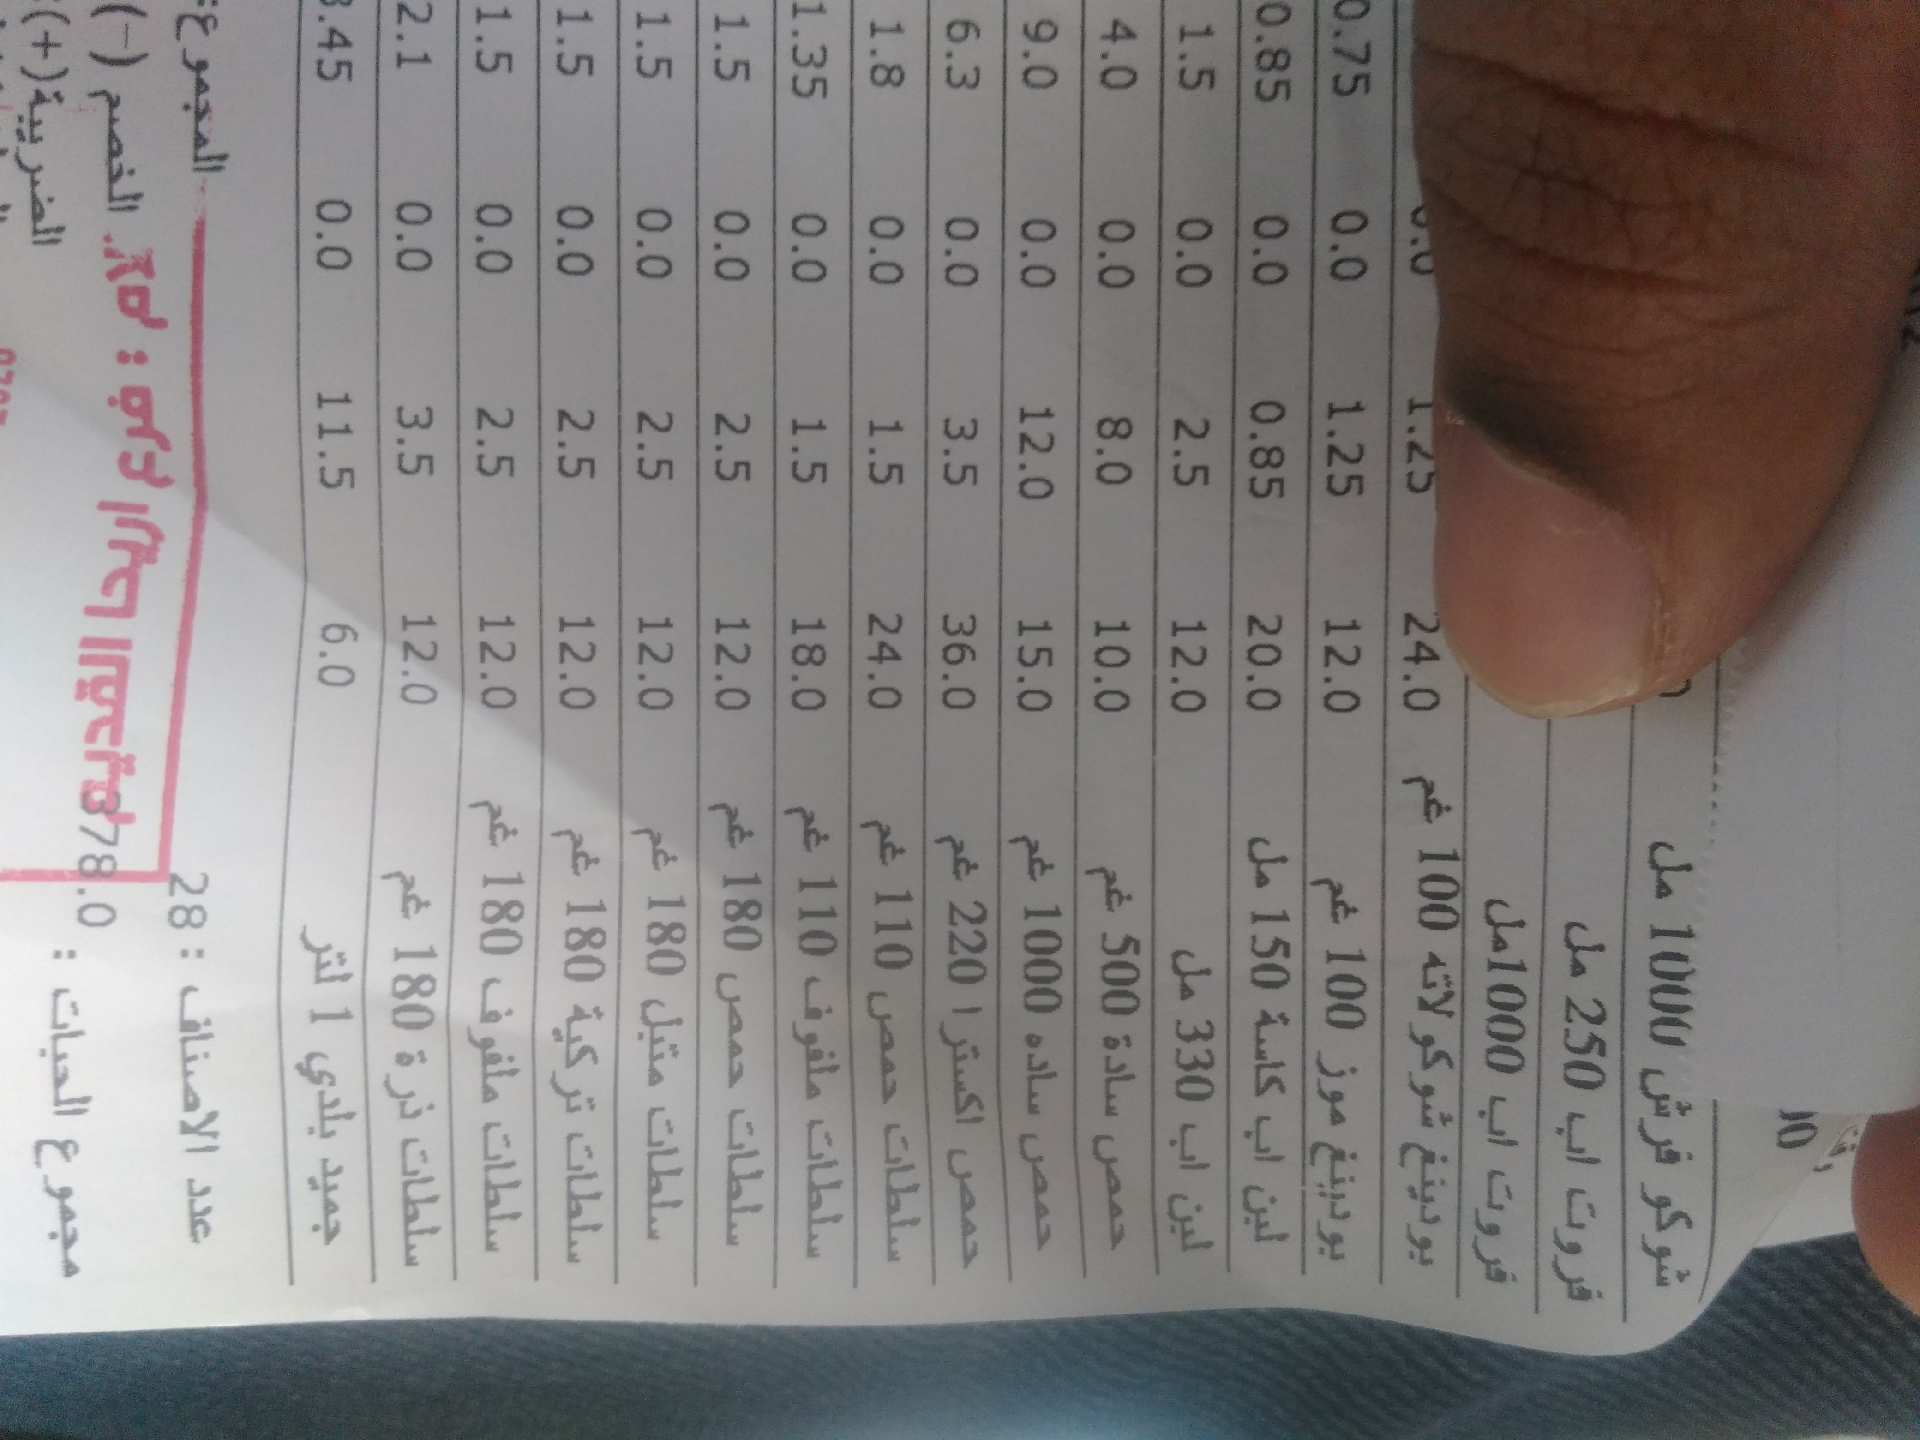 شوكو فرش 1000 مل
فروت اب 250 مل
فروت اب 1000مل
بودينغ شوكولاته 100 غم 24.0 1.25
بودينغ موز 100 غم 12.0 1.25 0.0 0.75
لبن اب كاسة 150 مل 20.0 0.85 0.0 0.85
لبن اب 330 مل 12.0 2.5 0.0 1.5
حمص سادة 500 غم 10.0 8.0 0.0 4.0
حمص ساده 1000 غم 15.0 12.0 0.0 9.0
حمص اكسترا 220 غم 36.0 3.5 0.0 6.3
سلطات حمص 110 غم 24.0 1.5 0.0 1.8
سلطات ملفوف 110 غم 18.0 1.5 0.0 1.35
سلطات حمص 180 غم 12.0 2.5 0.0 1.5
سلطات متبل 180 غم 12.0 2.5 0.0 1.5
سلطات تركية 180 غم 12.0 2.5 0.0 1.5
سلطات ملفوف 180 غم 12.0 2.5 0.0 1.5
سلطات ذرة 180 غم 12.0 3.5 0.0 2.1
جميد بلدي 1 لتر 6.0 11.5 0.0 .45
عدد الاصناف : 28 المجموع:
مجموع الحبات : 378.0 الخصم (-)
الضريبة(+)